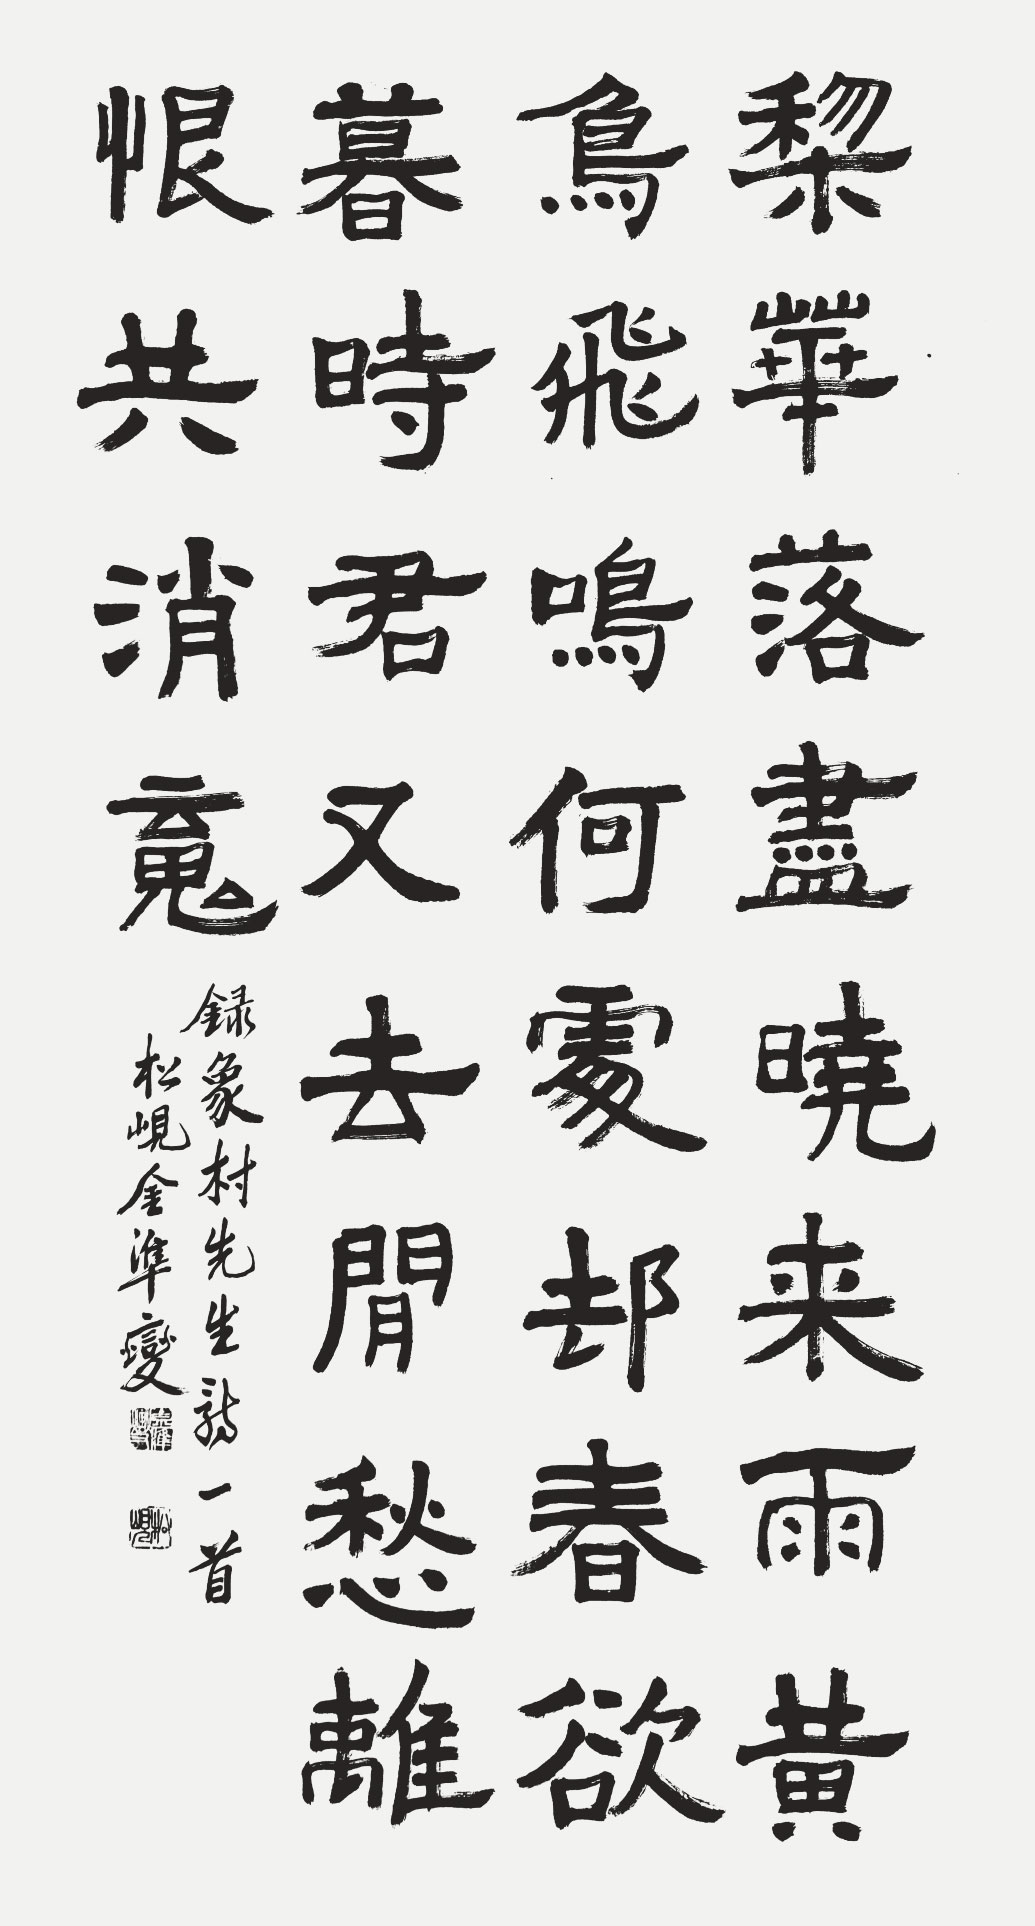 棃華落盡曉来雨黄
鳥飛鳴何處却春欲
暮時君又去閒愁離
恨共消䰟
録象村先生詩一首
松峴金準燮